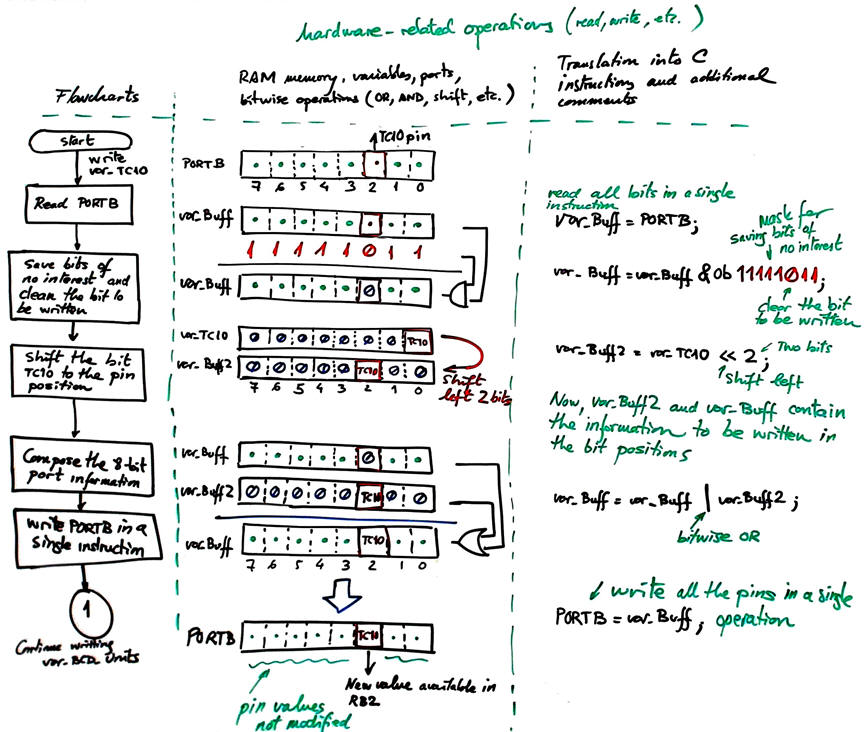 hardware-related operations (read, write, etc.)
Flowcharts
RAM memory, variables, ports,
bitwise operations (OR, AND, shift, etc.)
Translation into C
instructions and additional
comments
start
write
var_TC10
Read PORTB
Save bits of
no interest and
clean the bit to
be written
Shift the bit
TC10 to the pin
position
Compose the 8-bit
port information
Write PORTB in a
single instruction
1
Continue writting
var_BCD units
TC10 pin
PORTB
7 6 5 4 3 2 1 0
var_Buff
1 1 1 1 1 0 1 1
var_Buff
0
var_TC10
0 0 0 0 0 0 0 TC10
var_Buff2
0 0 0 0 0 TC10 0 0
7 6 5 4 3 2 1 0
shift
left 2 bits
var_Buff
0
var_Buff2
0 0 0 0 0 TC10 0 0
var_Buff
TC10
7 6 5 4 3 2 1 0
PORTB
TC10
pin values
not modified
New value available in
RB2
read all bits in a single
instruction
var_Buff = PORTB;
Mask for
saving bits of
no interest
var_Buff = var_Buff & 0b11111011;
clear the bit
to be written
var_Buff2 = var_TC10 << 2;
Two bits
shift left
Now, var_Buff2 and var_Buff contain
the information to be written in
the bit positions
var_Buff = var_Buff | var_Buff2;
bitwise OR
write all the pins in a single
operation
PORTB = var_Buff;